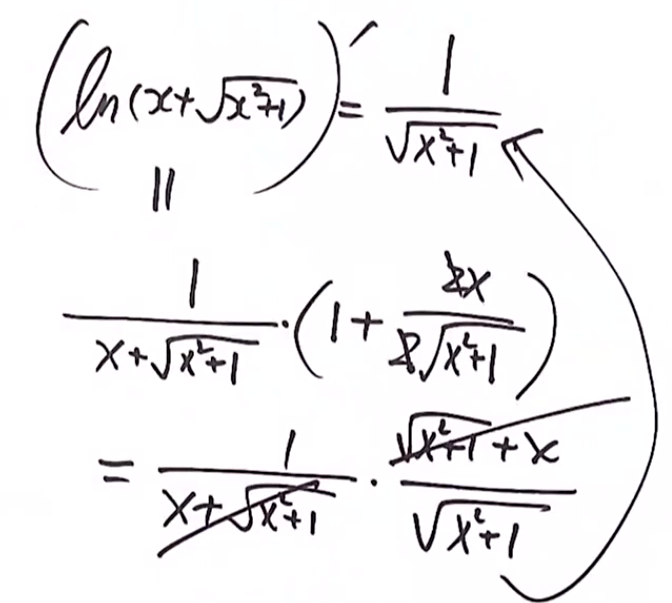 (ln(x+√(x²+1)))′ = 1/√(x²+1)
||
1/(x+√(x²+1)) · (1 + 2x/(2√(x²+1)))
= 1/(x+√(x²+1)) · (√(x²+1)+x)/√(x²+1)